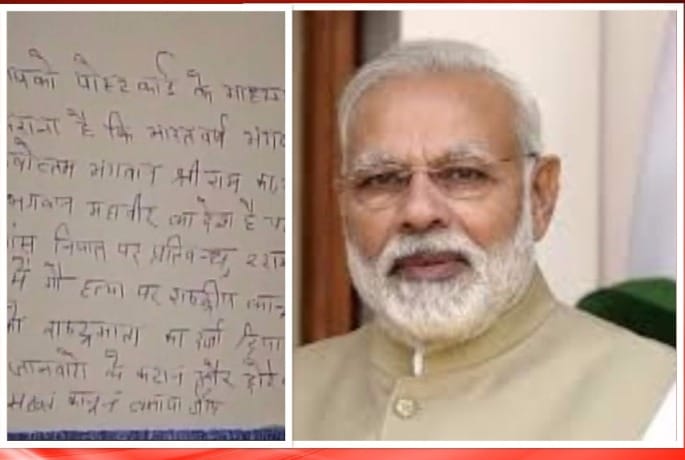 पको पोस्टकार्ड के माध्यम
कराना है कि भारतवर्ष भगव
षोत्तम भगवान श्री राम का,
भगवान महावीर का देश है
मांस निर्यात पर प्रतिबन्ध,
में गौ हत्या पर राष्ट्रीय कानू
को राष्ट्रमाता का दर्जा दिया
जानवरों के कटान और
सख्त कानून बनाया जाए